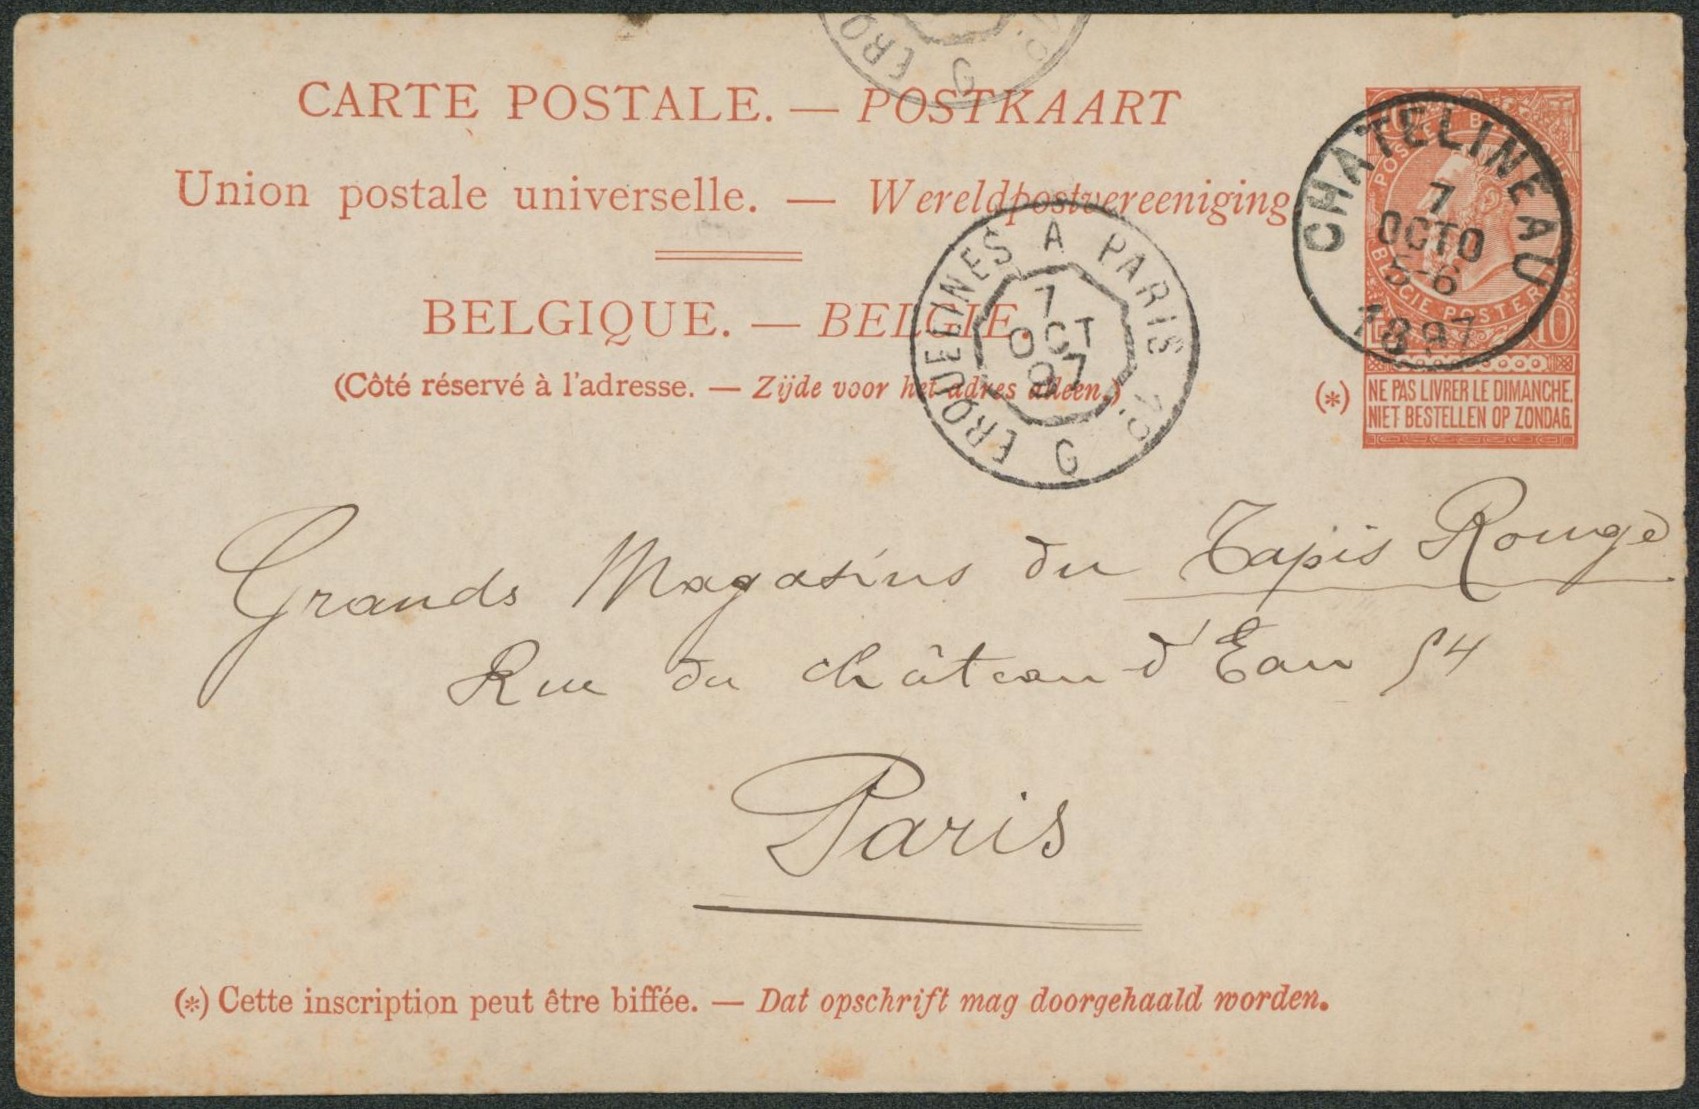 ERQ G
CARTE POSTALE. — POSTKAART
Union postale universelle. — Wereldpostvereeniging
BELGIQUE. — BELGIE.
(Côté réservé à l'adresse. — Zijde voor het adres alleen.)
CHATELINEAU
7
OCTO
5-6
1897
BELGIE POSTERIJ
10
(*) NE PAS LIVRER LE DIMANCHE.
NIET BESTELLEN OP ZONDAG.
ERQUELINES A PARIS 2º G
7
OCT
97
Grands Magasins du Tapis Rouge
Rue du château d'Eau 54
Paris
(*) Cette inscription peut être biffée. — Dat opschrift mag doorgehaald worden.